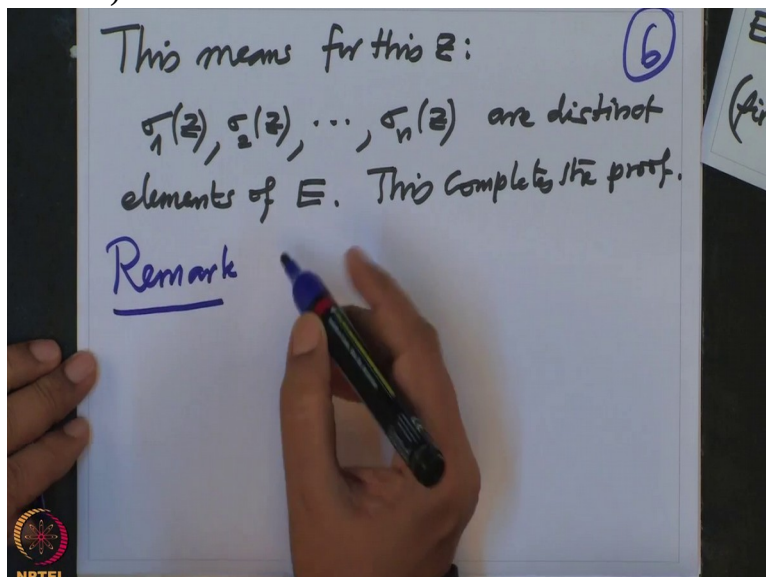 This means for this z: 6
σ₁(z), σ₂(z), ..., σₙ(z) are distinct
elements of E. This completes the proof.
Remark
E
(fin
NPTEL